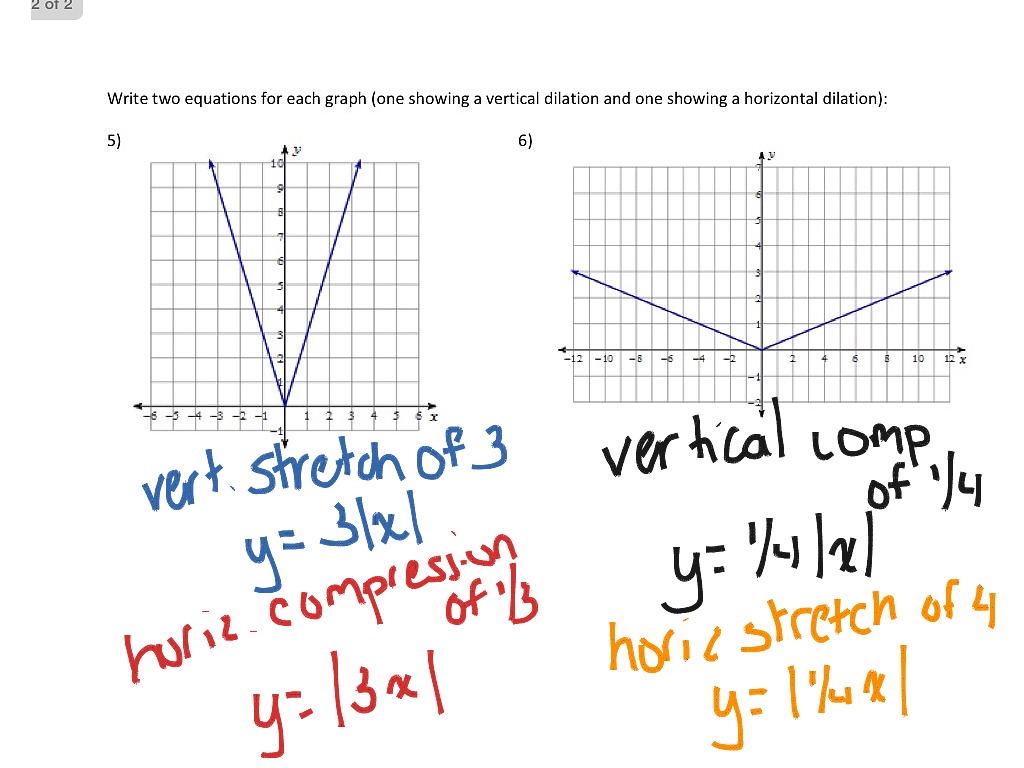 2 of 2
Write two equations for each graph (one showing a vertical dilation and one showing a horizontal dilation):
5)
y
10
9
8
7
6
5
4
3
2
1
-6 -5 -4 -3 -2 -1 1 2 3 4 5 6 x
-1
vert. stretch of 3
y = 3|x|
horiz. compression
of 1/3
y = |3x|
6)
y
7
6
5
4
3
2
1
-12 -10 -8 -6 -4 -2 2 4 6 8 10 12 x
-1
-2
vertical comp
of 1/4
y = 1/4 |x|
horiz stretch of 4
y = |1/4 x|